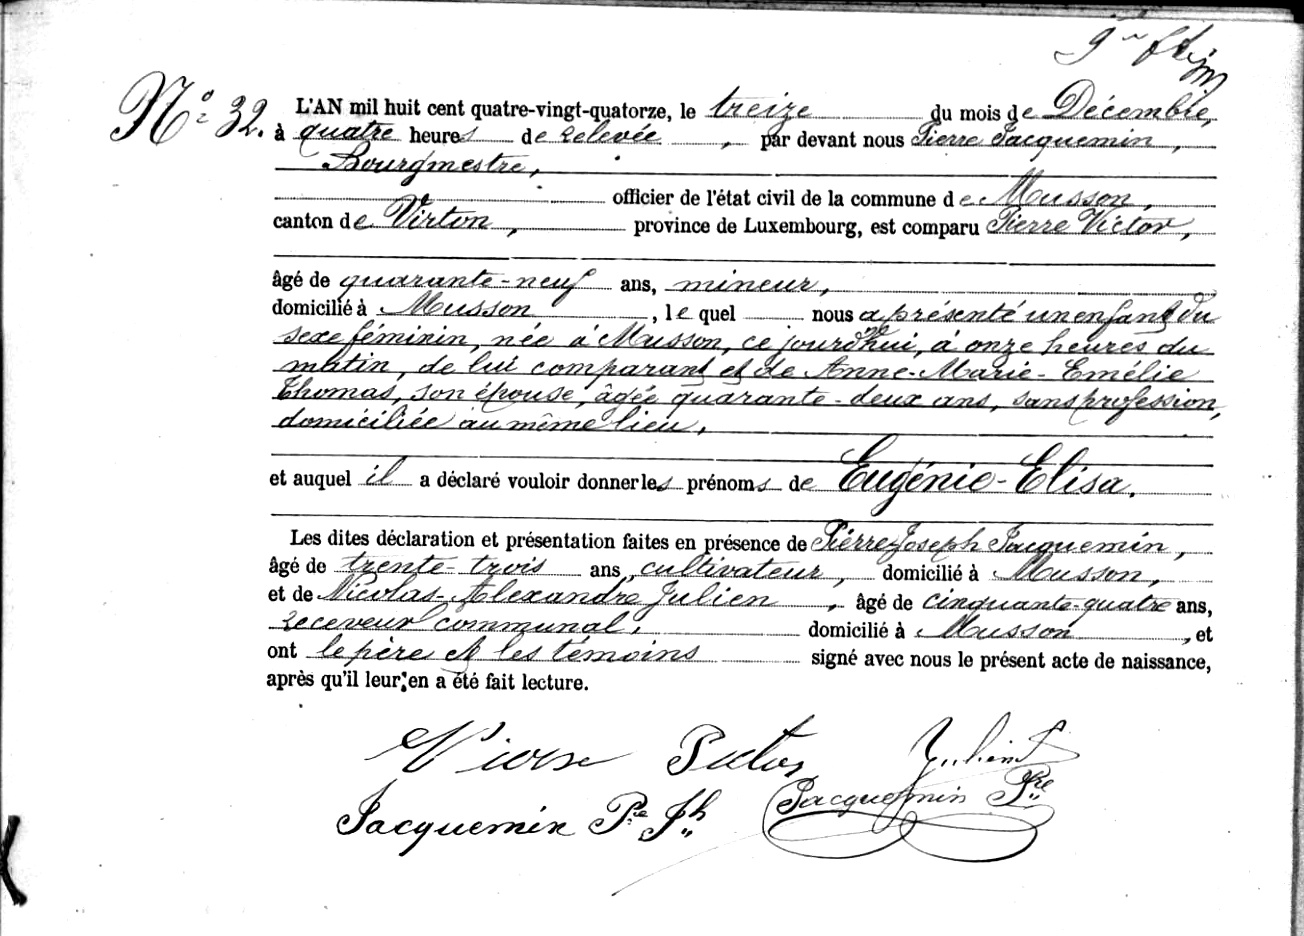 No 32.
L'AN mil huit cent quatre-vingt-quatorze, le treize du mois de Décembre,
à quatre heures de relevée, par devant nous Pierre Jacquemin,
Bourgmestre,
officier de l'état civil de la commune de Musson,
canton de Virton, province de Luxembourg, est comparu Pierre Victor,
âgé de quarante-neuf ans, mineur,
domicilié à Musson, le quel nous a présenté un enfant du
sexe féminin, née à Musson, ce jourd'hui, à onze heures du
matin, de lui comparant et de Anne-Marie-Emélie
Thomas, son épouse, âgée quarante-deux ans, sans profession,
domiciliée au même lieu,
et auquel il a déclaré vouloir donner les prénoms de Eugénie-Elisa.
Les dites déclaration et présentation faites en présence de Pierre Joseph Jacquemin,
âgé de trente-trois ans, cultivateur, domicilié à Musson,
et de Nicolas-Alexandre Julien, âgé de cinquante-quatre ans,
receveur communal, domicilié à Musson, et
ont le père et les témoins signé avec nous le présent acte de naissance,
après qu'il leur en a été fait lecture.
Julien
Jacquemin Pre Jh Jacquemin Pre